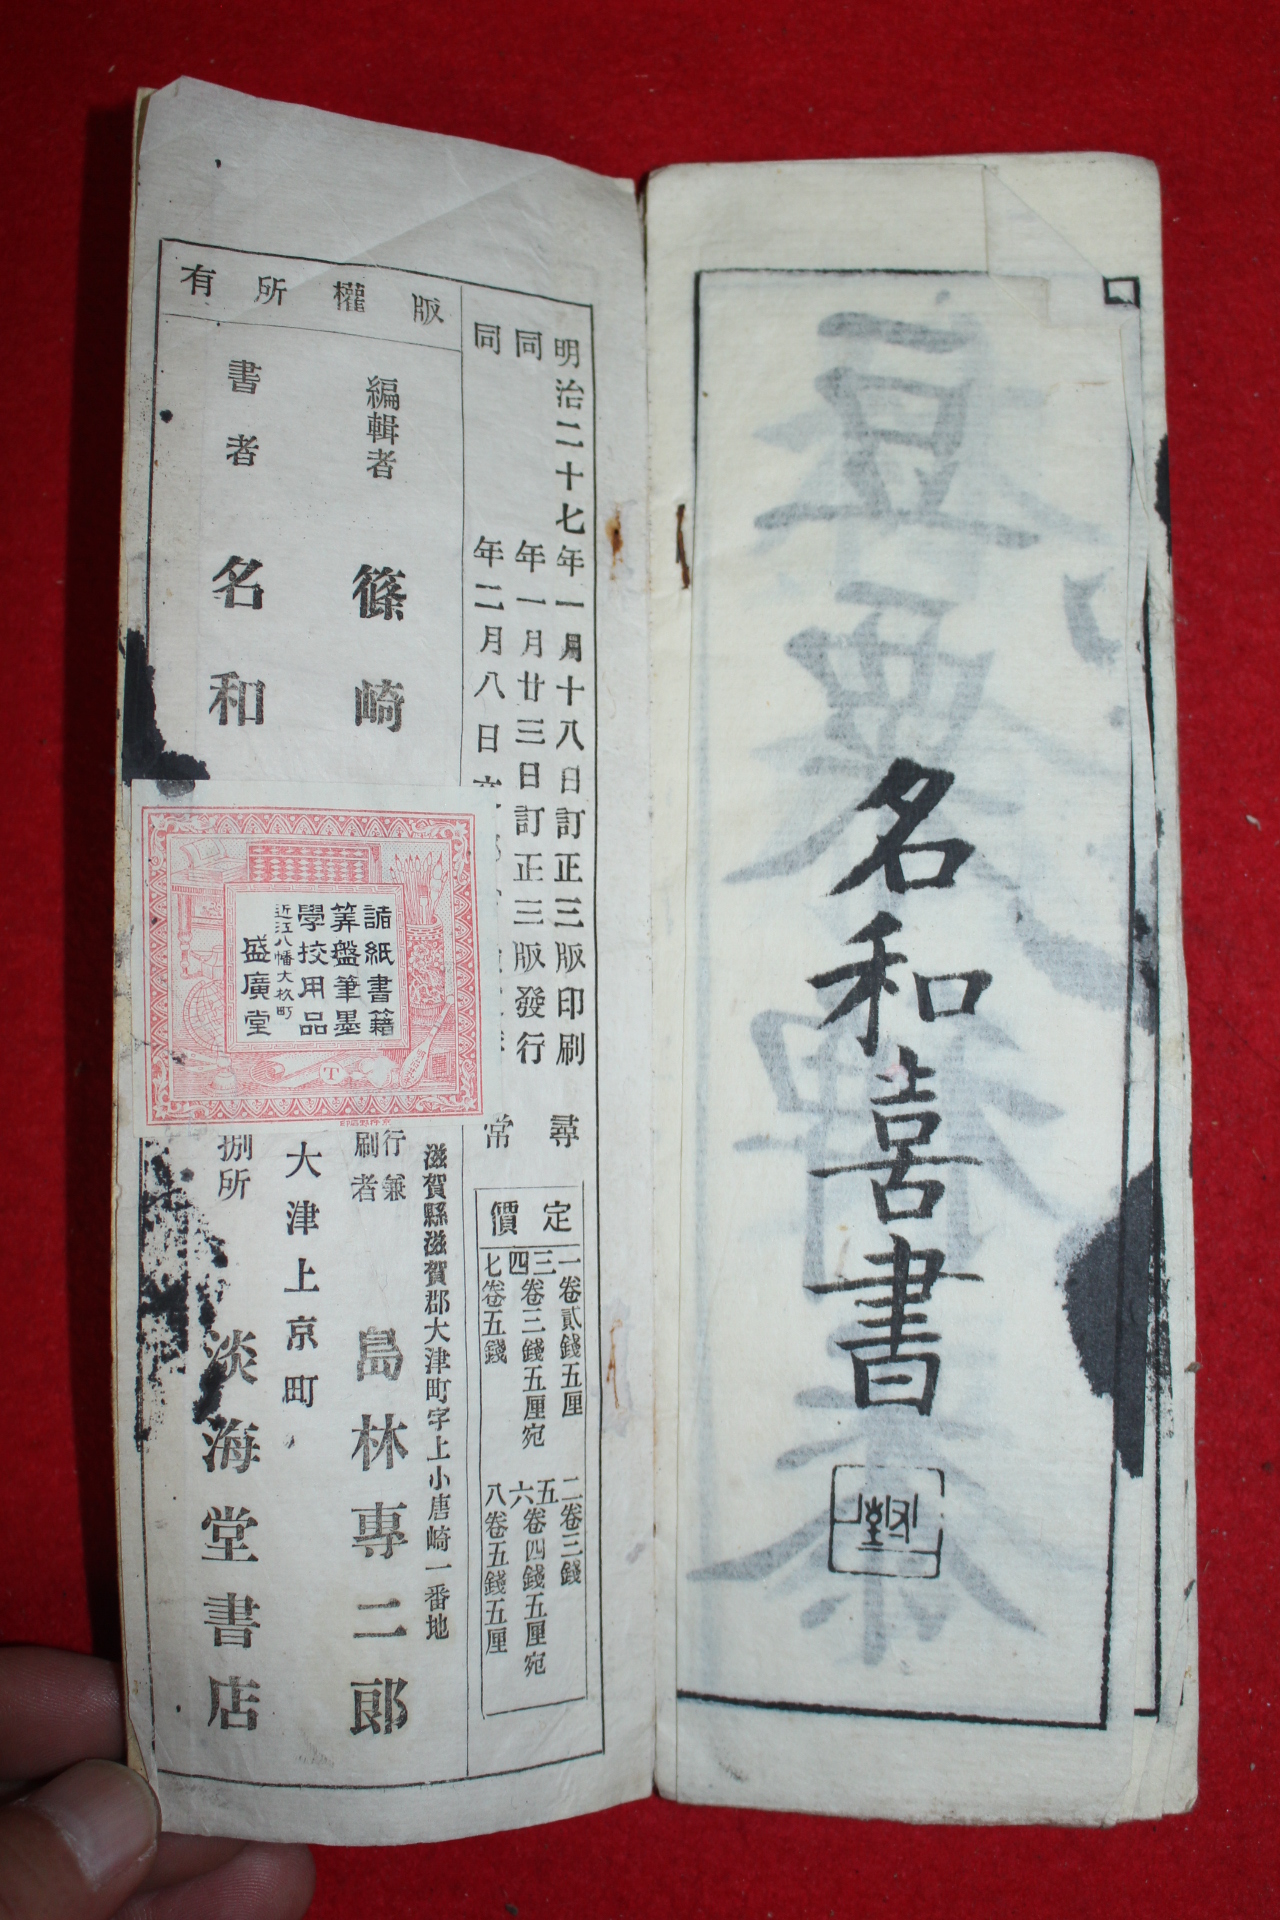 名和喜書
明治二十七年一月十八日訂正三版印刷
同年一月廿三日訂正三版發行
同年二月八日
尋
常
定價
一卷貳錢五厘
二卷三錢
三四卷三錢五厘宛
五六卷四錢五厘宛
七卷五錢
八卷五錢五厘
版權所有
編輯者 篠崎
書者 名和
滋賀縣滋賀郡大津町字上小唐崎一番地
行兼
刷者 島林專二郎
大津上京町
捌所 淡海堂書店
諸紙書籍
筭盤筆墨
學校用品
近江八幡大杉町
盛廣堂
T